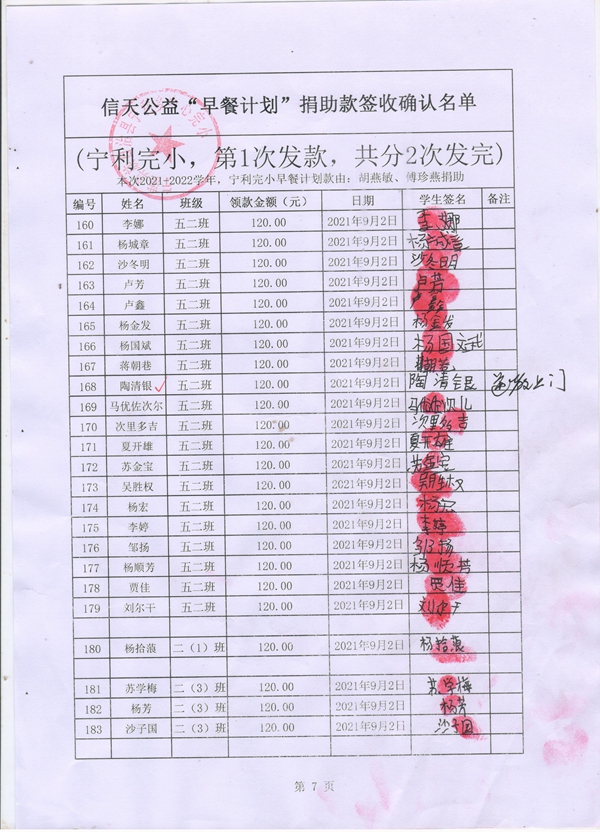 信天公益“早餐计划”捐助款签收确认名单
(宁利完小，第1次发款，共分2次发完)
本次2021-2022学年，宁利完小早餐计划款由：胡燕敏、傅珍燕捐助
编号 姓名 班级 领款金额（元） 日期 学生签名 备注
160 李娜 五二班 120.00 2021年9月2日 李娜
161 杨城章 五二班 120.00 2021年9月2日 杨城章
162 沙冬明 五二班 120.00 2021年9月2日 沙冬明
163 卢芳 五二班 120.00 2021年9月2日 卢芳
164 卢鑫 五二班 120.00 2021年9月2日 卢鑫
165 杨金发 五二班 120.00 2021年9月2日 杨金发
166 杨国斌 五二班 120.00 2021年9月2日 杨国斌
167 蒋朝巷 五二班 120.00 2021年9月2日
168 陶清银 五二班 120.00 2021年9月2日 陶清银
169 马优佐次尔 五二班 120.00 2021年9月2日
170 次里多吉 五二班 120.00 2021年9月2日 次里多吉
171 夏开雄 五二班 120.00 2021年9月2日 夏开雄
172 苏金宝 五二班 120.00 2021年9月2日 苏金宝
173 吴胜权 五二班 120.00 2021年9月2日 吴胜权
174 杨宏 五二班 120.00 2021年9月2日 杨宏
175 李婷 五二班 120.00 2021年9月2日 李婷
176 邹扬 五二班 120.00 2021年9月2日 邹扬
177 杨顺芳 五二班 120.00 2021年9月2日 杨顺芳
178 贾佳 五二班 120.00 2021年9月2日 贾佳
179 刘尔干 五二班 120.00 2021年9月2日 刘尔干
180 杨拾蒗 二（1）班 120.00 2021年9月2日 杨拾蒗
181 苏学梅 二（3）班 120.00 2021年9月2日 苏学梅
182 杨芳 二（3）班 120.00 2021年9月2日 杨芳
183 沙子国 二（3）班 120.00 2021年9月2日 沙子国
第 7 页